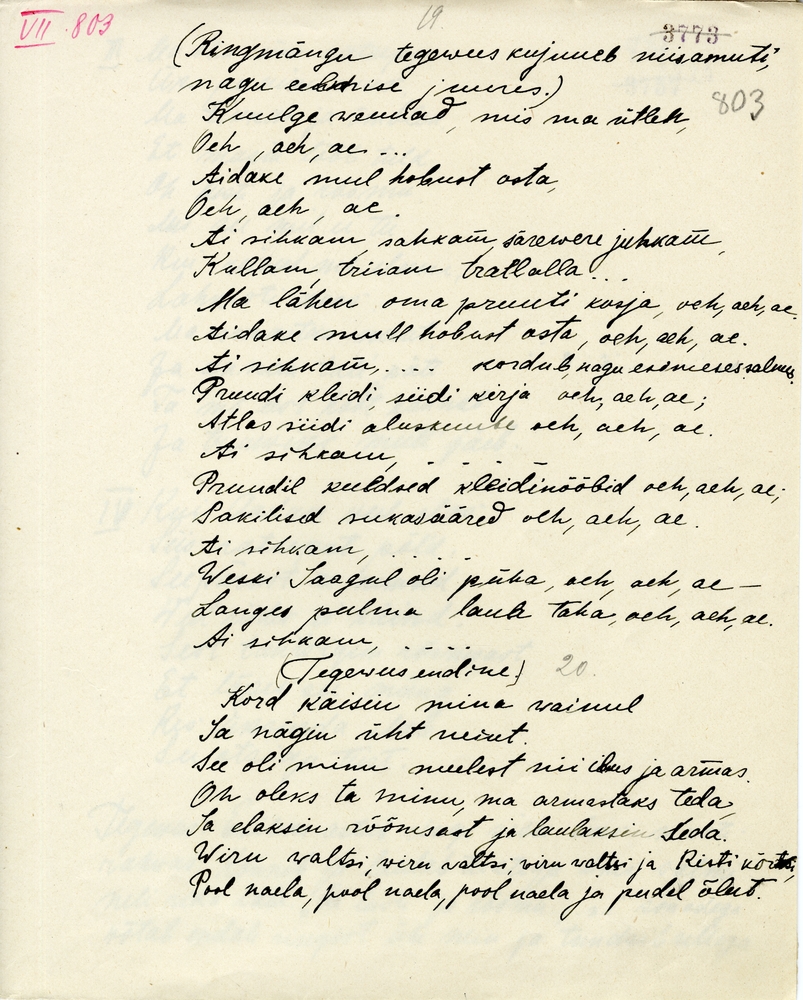 VII 803
19.
3773
(Ringmängu tegewus kujuneb niisamuti,
nagu eelmise juures.)
803
Kuulge wennad, mis ma ütlen,
Oeh, aeh, ae ...
Aidake mul hobust osta,
Oeh, aeh, ae.
Ai sihkam, sahkam, särewere juhkam,
Kullam, triiam trallalla ...
Ma lähen oma pruuti kosja, oeh, aeh, ae.
Aidake mull hobust osta, oeh, aeh, ae.
Ai sihkam, .... kordub, nagu esimeses salmis.
Pruudi kleidi, siidi kirja oeh, aeh, ae;
Atlas siidi aluskuube oeh, aeh, ae.
Ai sihkam, - - - -
Pruudil kuldsed kleidinööbid oeh, aeh, ae;
Pakilised sukasääred oeh, aeh, ae.
Ai sihkam, . . . .
Weski Jaagul oli püha, oeh, aeh, ae —
Langes pulma laua taha, oeh, aeh, ae.
Ai sihkam, ....
(Tegewus endine.) 20.
Kord käisin mina wainul
Ja nägin üht neiut.
See oli minu meelest nii ilus ja armas.
Oh oleks ta minu, ma armastaks teda,
Ja elaksin rõõmsast ja laulaksin seda.
Wiru waltsi, wiru valtsi, wiru valtsi ja Risti kõrtsi,
Pool naela, pool naela, pool naela ja pudel õlut.